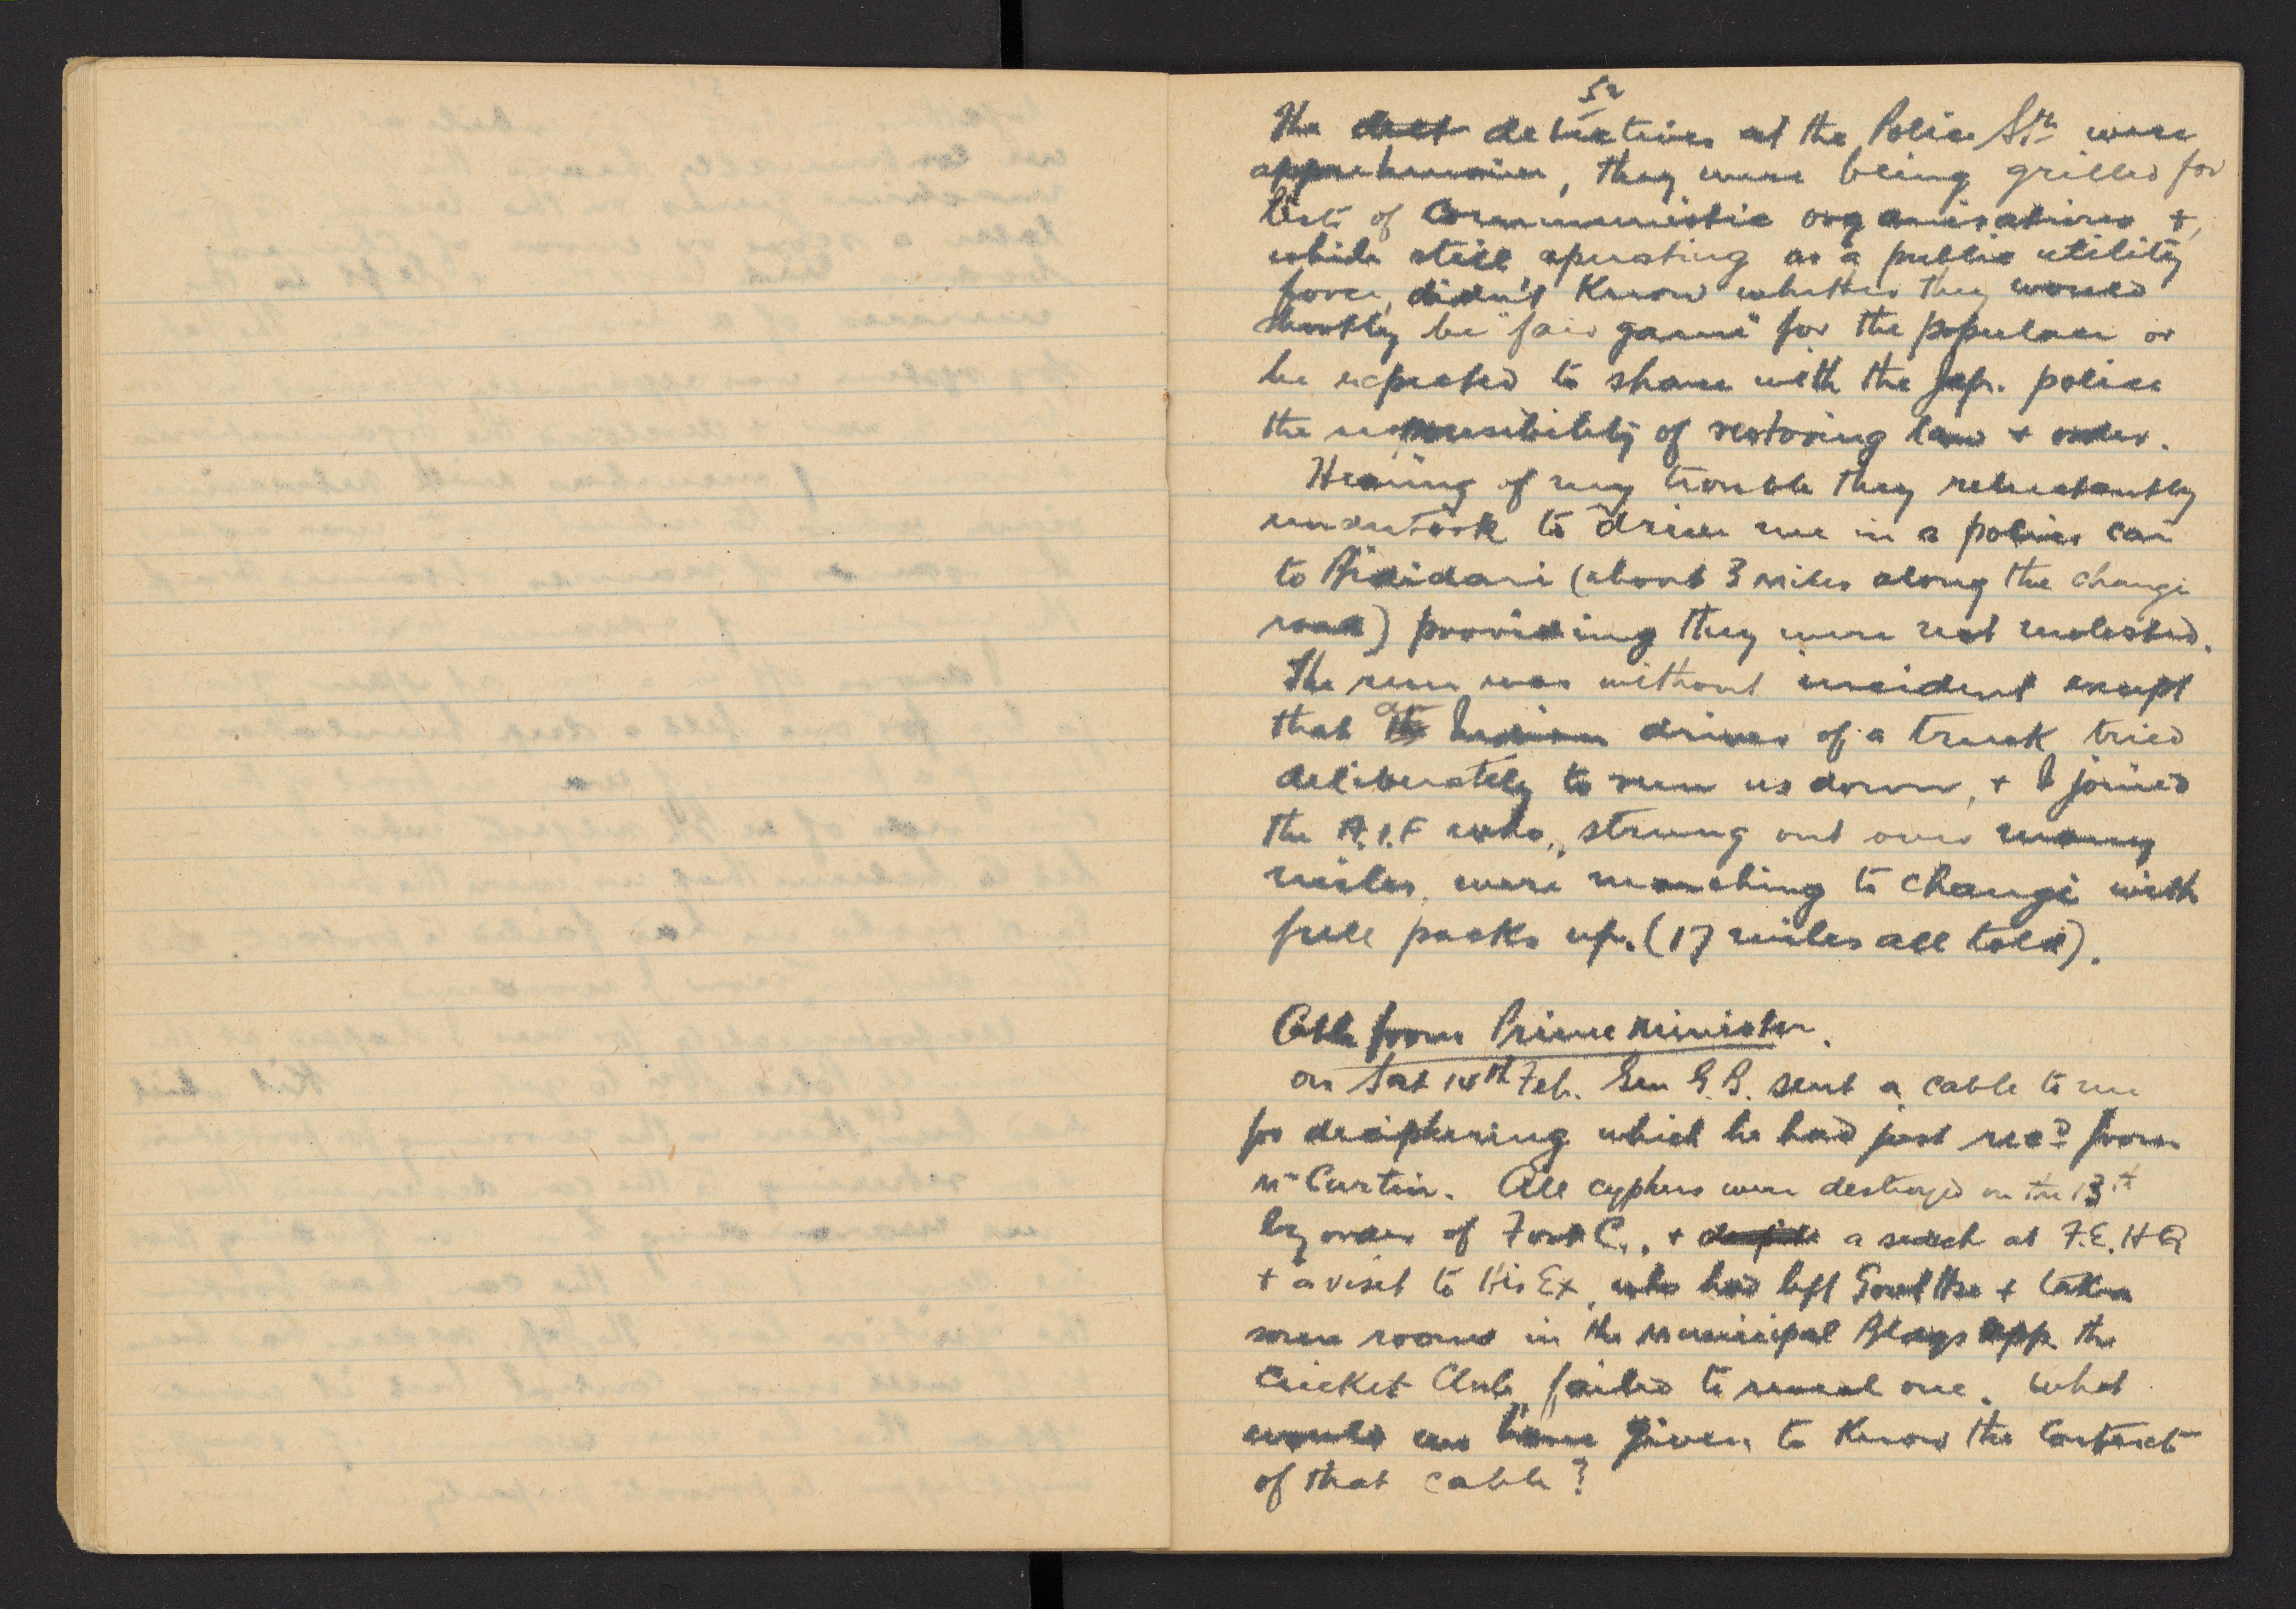 52
The detectives at the Police Stn were
apprehensive, they were being grilled for
list of Communistic organisations &,
while still operating as a public utility
force, didn't know whether they would
shortly be "fair game" for the populace or
be expected to share with the Jap. police
the responsibility of restoring law & order.
Hearing of my trouble they reluctantly
undertook to drive me in a police car
to Bididari (about 3 miles along the changi
road) providing they were not molested.
The run was without incident except
that an Indian driver of a truck tried
deliberately to run us down, & I joined
the A.I.F who, strung out over many
miles, were marching to Changi with
full packs up. (17 miles all told).
Cable from Prime Minister.
on Sat 14th Feb. Gen G.B. sent a cable to me
for deciphering which he had just recd from
Mr Curtin. All cyphers were destroyed on the 13th
by order of Fort C., & despite a search at F.E.HQ
& a visit to His Ex, who had left Govt Hse & taken
some rooms in the Municipal Bldgs opp. the
Cricket Club, failed to reveal one. What
would we have given to know the content
of that cable?